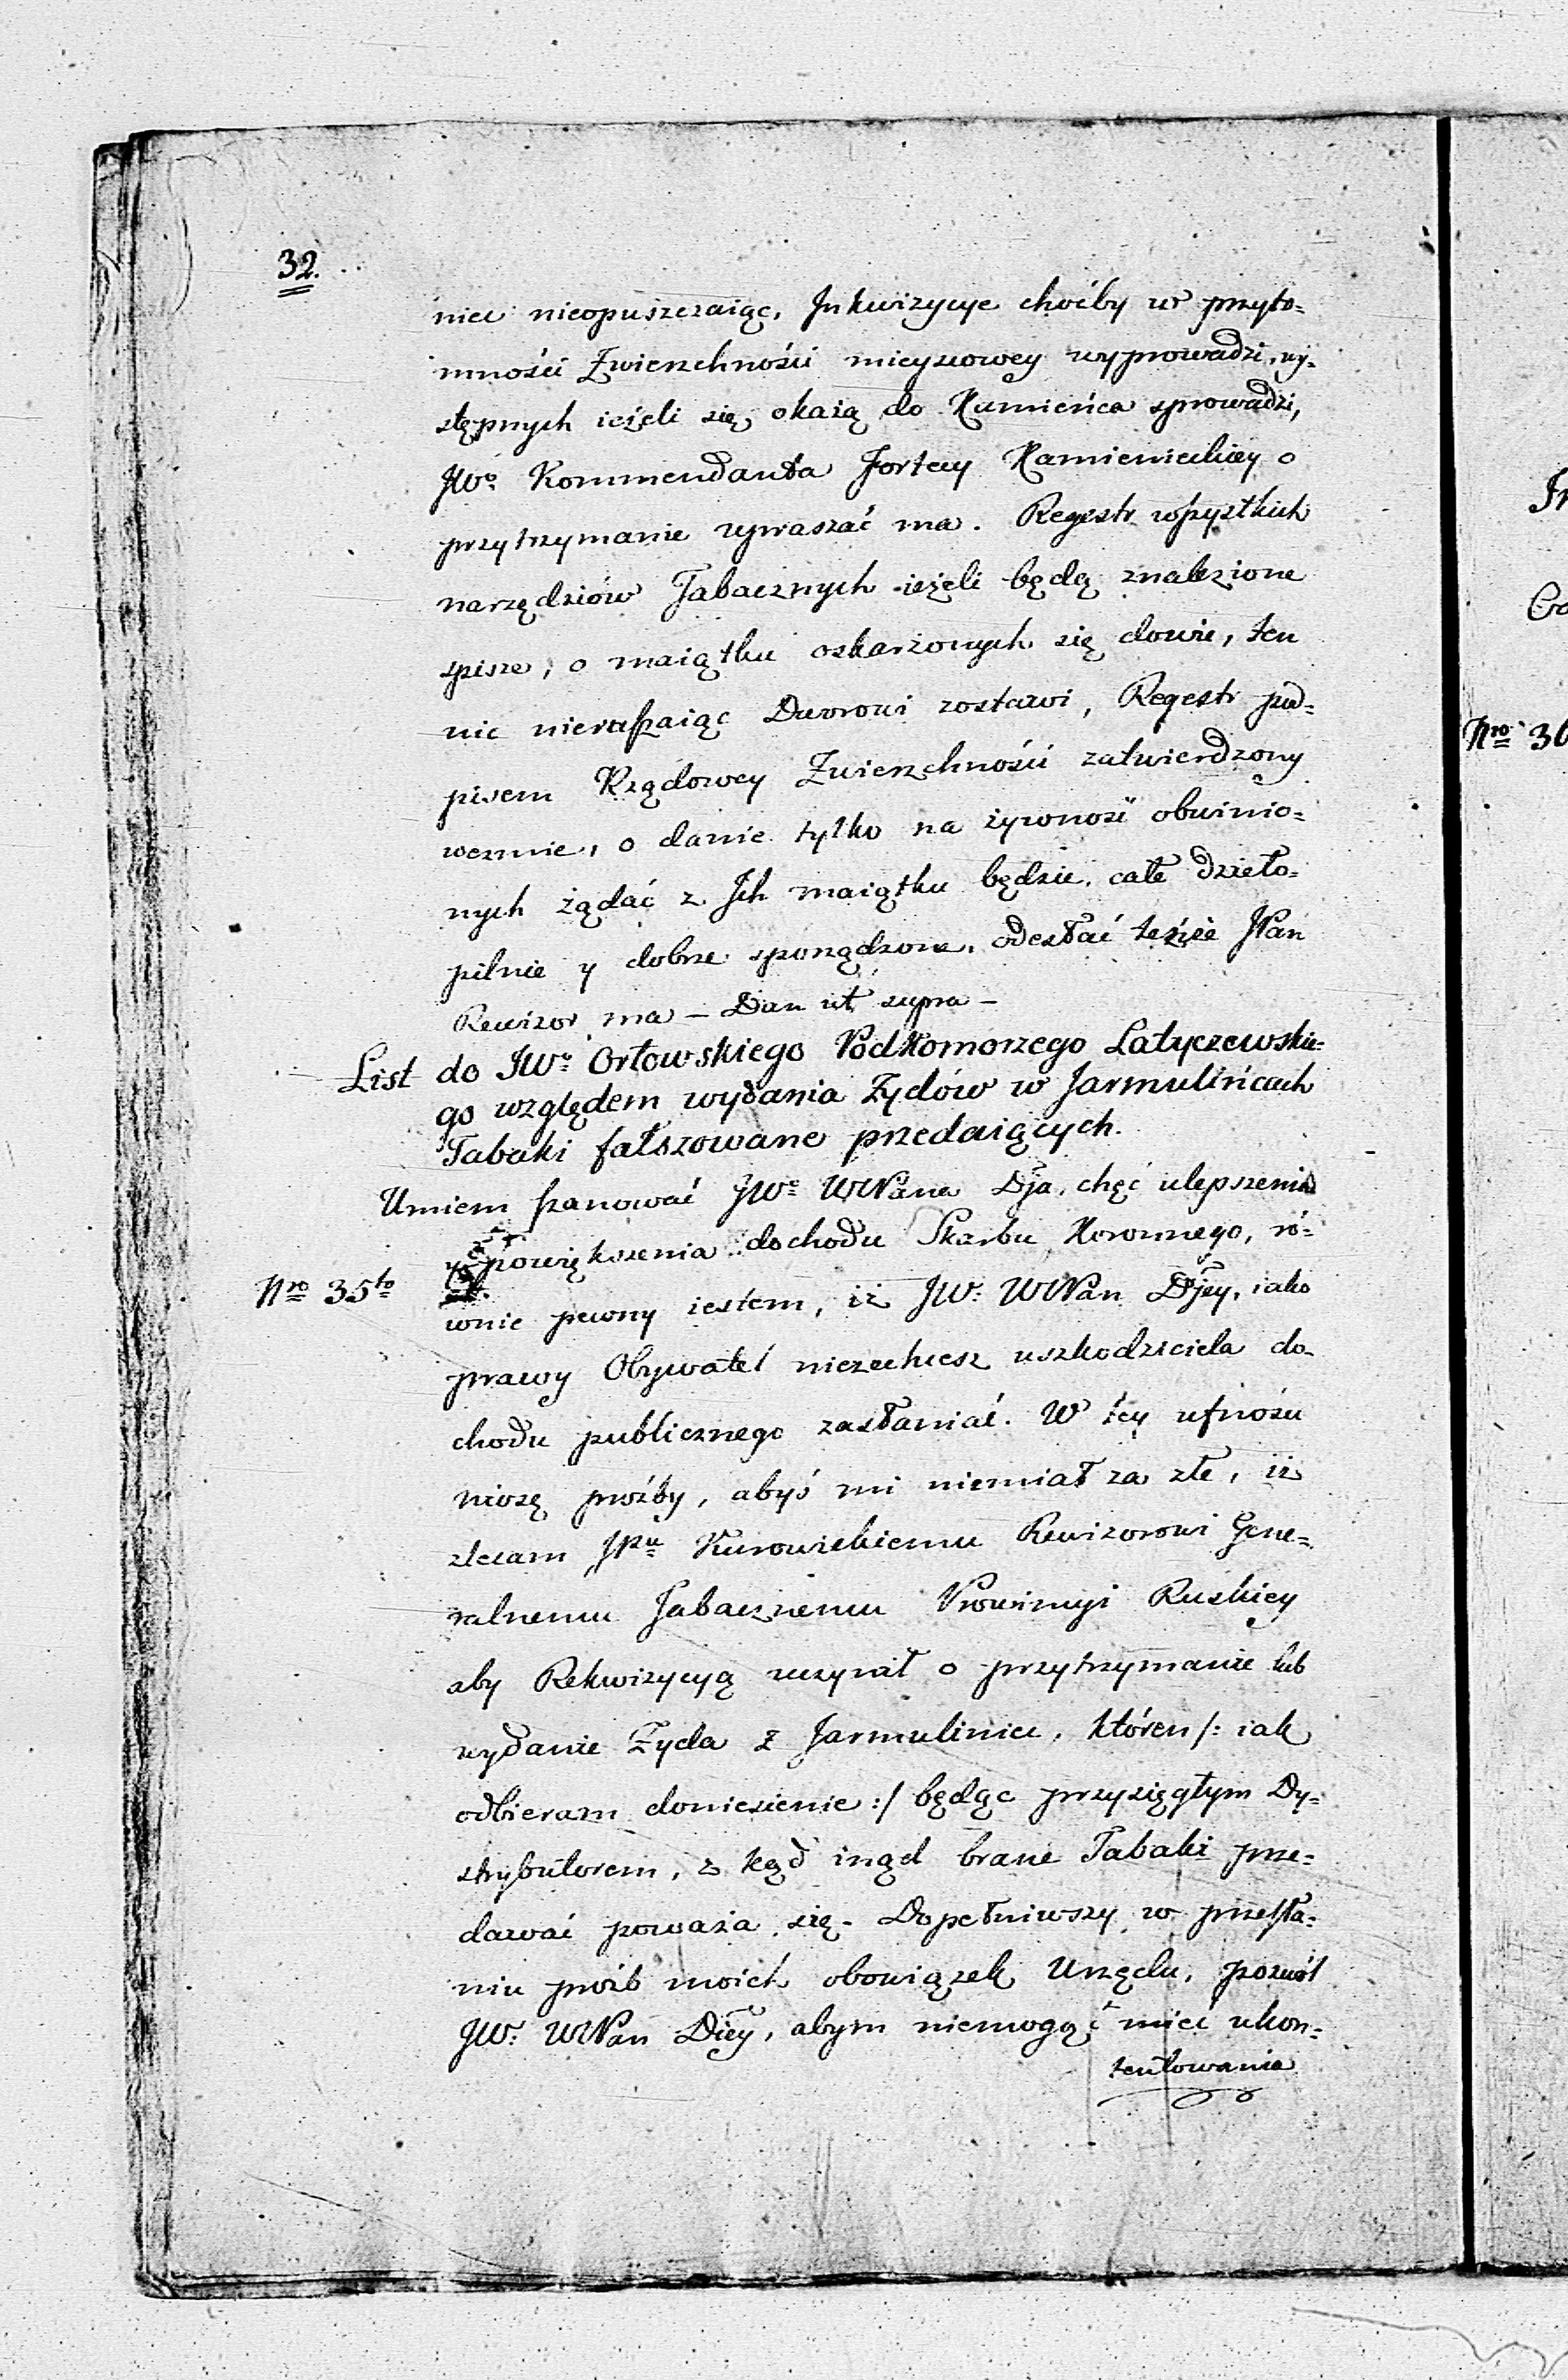 32.
niec nieopuszczaiąc, Inkwizycye choćby w przyto=
mności Zwierzchności mieyscowey wyprowadzi, wy=
stępnych ieżeli się okażą do Kamieńca sprowadzi,
JWo. Kommendanta Fortecy Kamienieckiey o
przytrzymanie upraszać ma. Regestr wszystkich
narzędziów Tabacznych ieżeli będą znalezione
spisze, o maiątku oskarżonych się dowie, ten
nic nieruszaiąc Dworowi zostawi, Regestr pod=
pisem Rządowey Zwierzchności zatwierdzony
wezmie, o danie tylko na żywność obwinio=
nych żądać z Ich maiątku będzie. całe dzieło
pilnie y dobrze sporządzone, odesłać tenże JPan
Rewizor ma – Dan ut supra –
List do JWo. Orłowskiego Podkomorzego Latyczewskie=
go względem wydania Żydów w Jarmulińcach
Tabaki fałszowane przedaiących.
Umiem szanować JWo WPana Dja, chęć ulepszenia
y powiększenia dochodu Skarbu Koronnego, ró=
Nro 35to
wnie pewny iestem, iż JW. WPan Djey, iako
prawy Obywatel niezechcesz uszkodziciela do=
chodu publicznego zasłaniać. W tey ufności
niosę prożby, abyś mi niemiał za złe, iż
zlecam JPu Kurowickiemu Rewizorowi Gene=
ralnemu Tabacznemu Prowincyi Ruskiey
aby Rekwizycyą uczynił o przytrzymanie lub
wydanie Żyda z Jarmuliniec, któren /: iak
odbieram doniesienie :/ będąc przysięgłym Dy=
strybutorem, z kąd inąd brane Tabaki prze=
dawać poważa się. Dopełniwszy w przesła=
niu prożb moich obowiązek Urzędu, pozwól
JW. WPan Diey, abym niemogąc mieć ukon=
tentowania
Nro 36